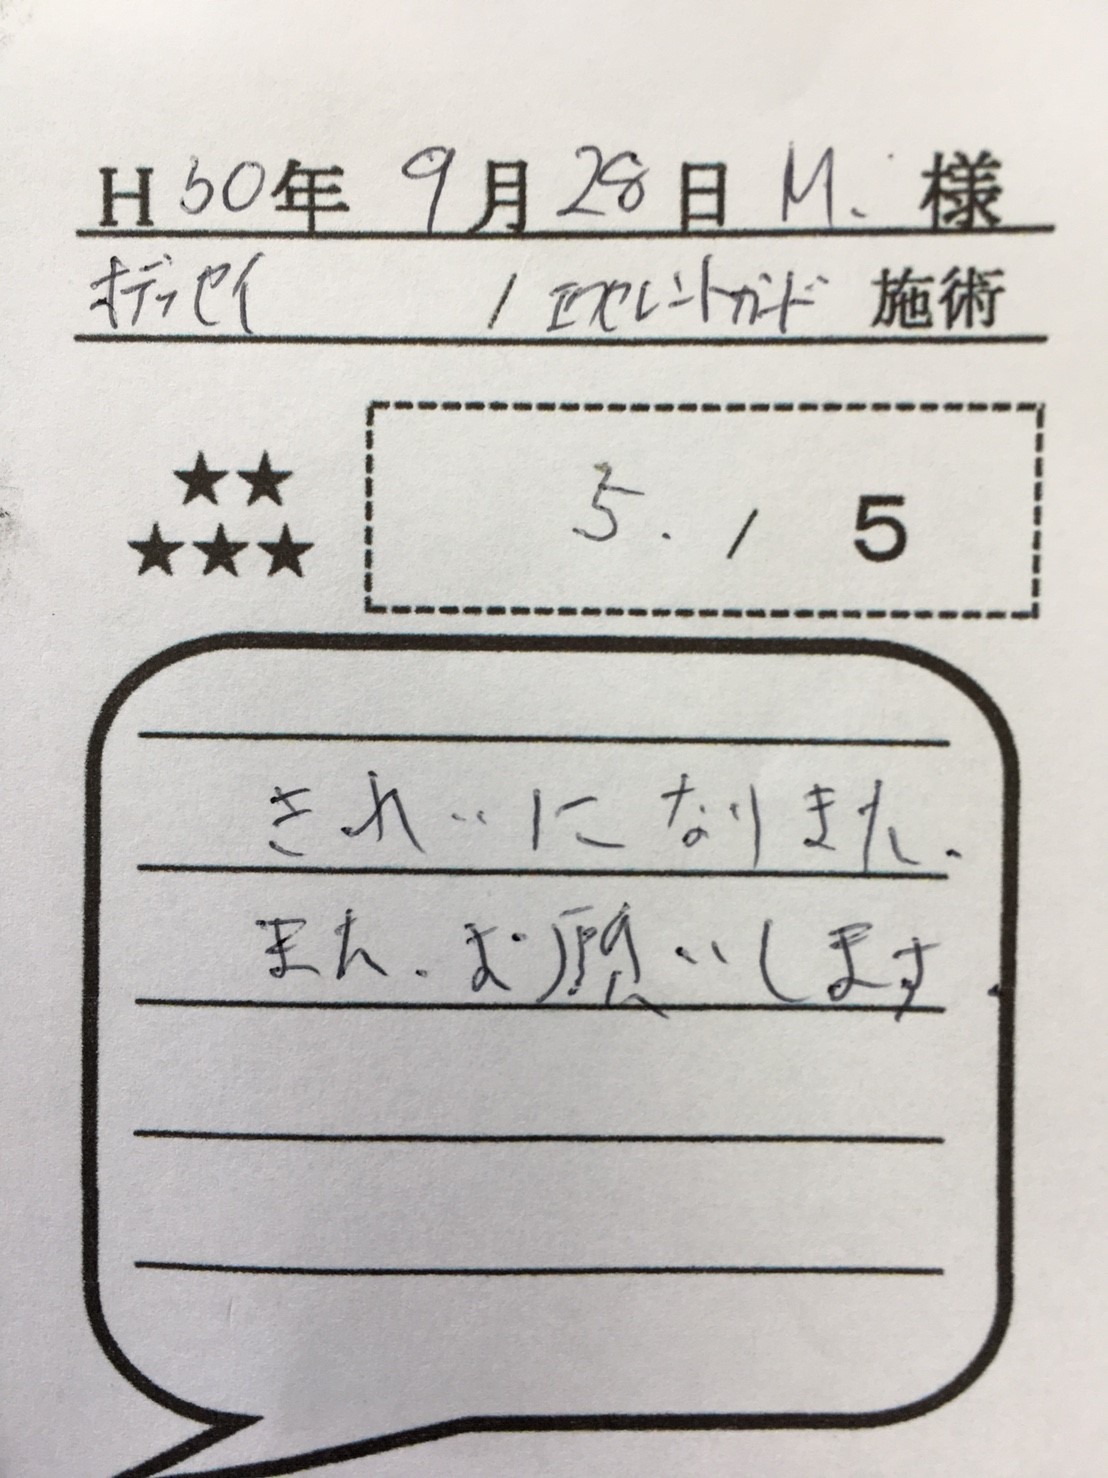 H 30年 9月 28日 M. 様
オデッセイ / エクセレントガード 施術
★★
★★★
5. / 5
きれいになりました.
また. お願いします.